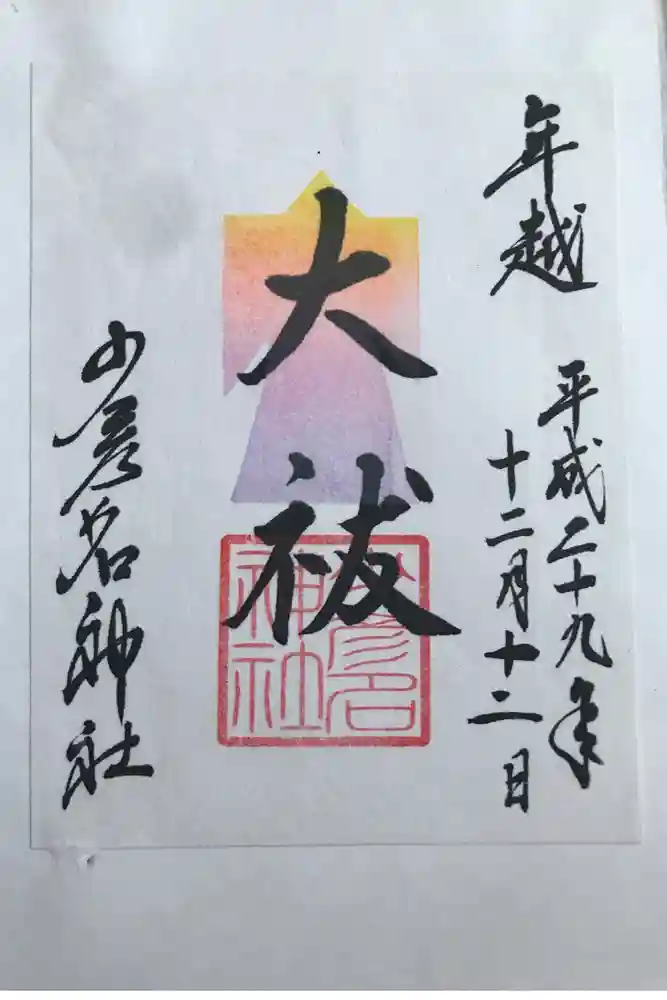 年越
平成二十九年
十二月十二日
大祓
少彦名
神社
少彦名神社